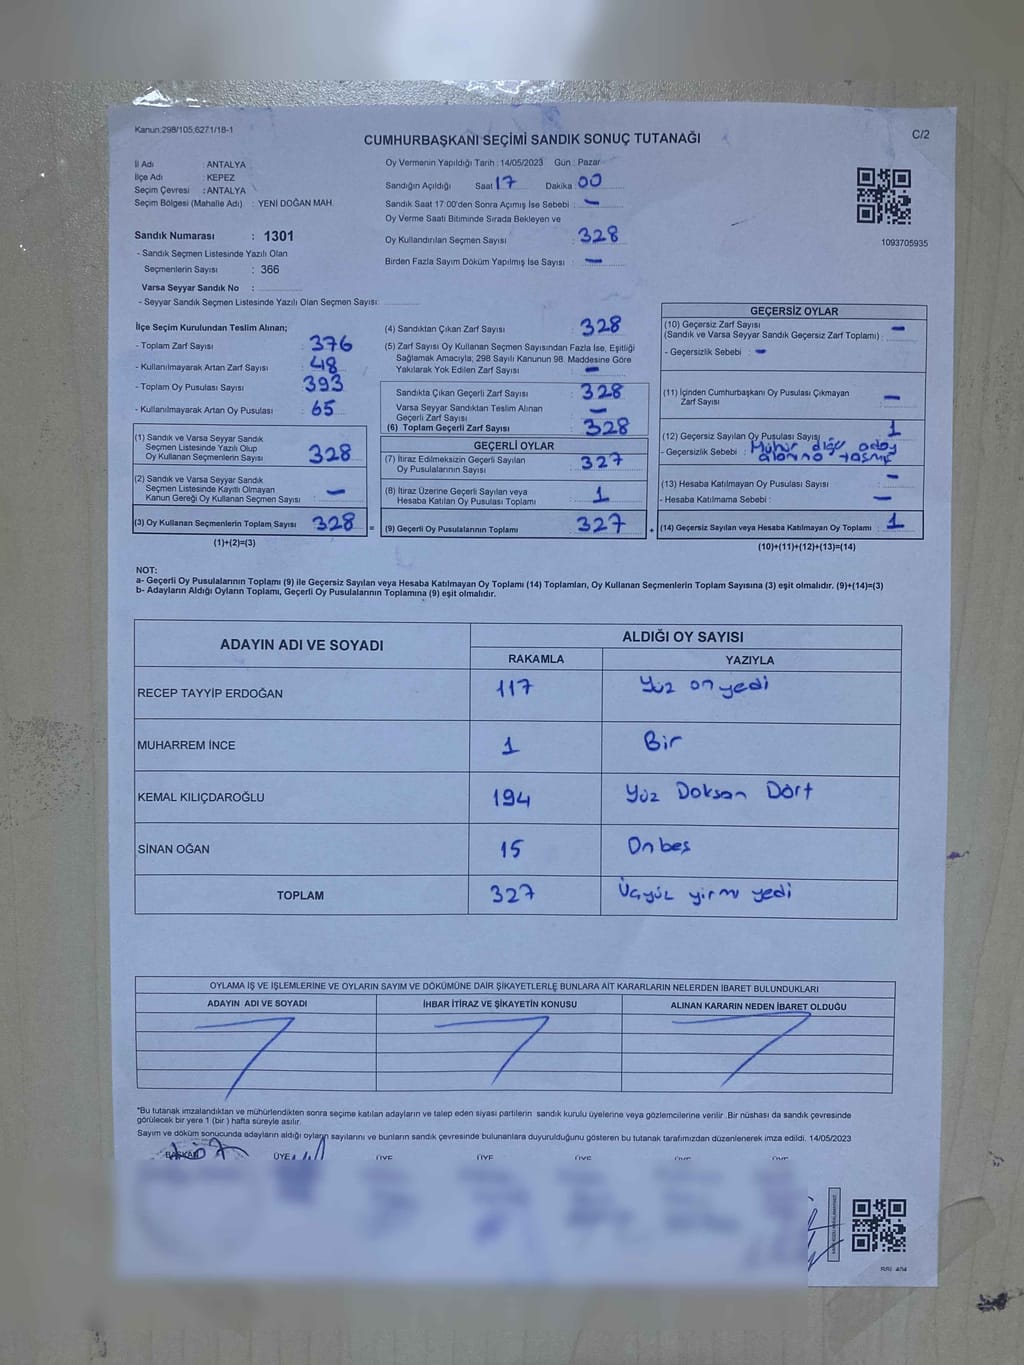 Kanun:298/105,6271/18-1
CUMHURBAŞKANI SEÇİMİ SANDIK SONUÇ TUTANAĞI
C/2
İl Adı : ANTALYA
İlçe Adı : KEPEZ
Seçim Çevresi : ANTALYA
Seçim Bölgesi (Mahalle Adı) : YENİ DOĞAN MAH.
Sandık Numarası : 1301
- Sandık Seçmen Listesinde Yazılı Olan
Seçmenlerin Sayısı : 366
Varsa Seyyar Sandık No :
- Seyyar Sandık Seçmen Listesinde Yazılı Olan Seçmen Sayısı:
Oy Vermenin Yapıldığı Tarih : 14/05/2023 Gün : Pazar
Sandığın Açıldığı Saat 17 Dakika : 00
Sandık Saat 17:00'den Sonra Açımış İse Sebebi : -
Oy Verme Saati Bitiminde Sırada Bekleyen ve
Oy Kullandırılan Seçmen Sayısı : 328
Birden Fazla Sayım Döküm Yapılmış İse Sayısı : -
1093705935
İlçe Seçim Kurulundan Teslim Alınan;
- Toplam Zarf Sayısı : 376
- Kullanılmayarak Artan Zarf Sayısı : 48
- Toplam Oy Pusulası Sayısı : 393
- Kullanılmayarak Artan Oy Pusulası : 65
(1) Sandık ve Varsa Seyyar Sandık
Seçmen Listesinde Yazılı Olup
Oy Kullanan Seçmenlerin Sayısı : 328
(2) Sandık ve Varsa Seyyar Sandık
Seçmen Listesinde Kayıtlı Olmayan
Kanun Gereği Oy Kullanan Seçmen Sayısı : -
(3) Oy Kullanan Seçmenlerin Toplam Sayısı : 328
(1)+(2)=(3)
(4) Sandıktan Çıkan Zarf Sayısı : 328
(5) Zarf Sayısı Oy Kullanan Seçmen Sayısından Fazla İse, Eşitliği
Sağlamak Amacıyla; 298 Sayılı Kanunun 98. Maddesine Göre
Yakılarak Yok Edilen Zarf Sayısı : -
Sandıkta Çıkan Geçerli Zarf Sayısı : 328
Varsa Seyyar Sandıktan Teslim Alınan
Geçerli Zarf Sayısı : -
(6) Toplam Geçerli Zarf Sayısı : 328
GEÇERLİ OYLAR
(7) İtiraz Edilmeksizin Geçerli Sayılan
Oy Pusulalarının Sayısı : 327
(8) İtiraz Üzerine Geçerli Sayılan veya
Hesaba Katılan Oy Pusulası Toplamı : 1
= (9) Geçerli Oy Pusulalarının Toplamı : 327 +
GEÇERSİZ OYLAR
(10) Geçersiz Zarf Sayısı
(Sandık ve Varsa Seyyar Sandık Geçersiz Zarf Toplamı) : -
- Geçersizlik Sebebi : -
(11) İçinden Cumhurbaşkanı Oy Pusulası Çıkmayan
Zarf Sayısı : -
(12) Geçersiz Sayılan Oy Pusulası Sayısı : 1
- Geçersizlik Sebebi : Mühür diğer aday
alanına taşmış
(13) Hesaba Katılmayan Oy Pusulası Sayısı : -
- Hesaba Katılmama Sebebi : -
(14) Geçersiz Sayılan veya Hesaba Katılmayan Oy Toplamı : 1
(10)+(11)+(12)+(13)=(14)
NOT:
a- Geçerli Oy Pusulalarının Toplamı (9) ile Geçersiz Sayılan veya Hesaba Katılmayan Oy Toplamı (14) Toplamları, Oy Kullanan Seçmenlerin Toplam Sayısına (3) eşit olmalıdır. (9)+(14)=(3)
b- Adayların Aldığı Oyların Toplamı, Geçerli Oy Pusulalarının Toplamına (9) eşit olmalıdır.
ADAYIN ADI VE SOYADI ALDIĞI OY SAYISI
RAKAMLA YAZIYLA
RECEP TAYYİP ERDOĞAN 117 Yüz on yedi
MUHARREM İNCE 1 Bir
KEMAL KILIÇDAROĞLU 194 Yüz Doksan Dört
SİNAN OĞAN 15 Onbeş
TOPLAM 327 Üçyüz yirmi yedi
OYLAMA İŞ VE İŞLEMLERİNE VE OYLARIN SAYIM VE DÖKÜMÜNE DAİR ŞİKAYETLERLE BUNLARA AİT KARARLARIN NELERDEN İBARET BULUNDUKLARI
ADAYIN ADI VE SOYADI İHBAR İTİRAZ VE ŞİKAYETİN KONUSU ALINAN KARARIN NEDEN İBARET OLDUĞU
*Bu tutanak imzalandıktan ve mühürlendikten sonra seçime katılan adayların ve talep eden siyasi partilerin sandık kurulu üyelerine veya gözlemcilerine verilir. Bir nüshası da sandık çevresinde
görülecek bir yere 1 (bir) hafta süreyle asılır.
Sayım ve döküm sonucunda adayların aldığı oyların sayılarını ve bunların sandık çevresinde bulunanlara duyurulduğunu gösteren bu tutanak tarafımızdan düzenlenerek imza edildi. 14/05/2023
BAŞKAN ÜYE ÜYE ÜYE ÜYE ÜYE ÜYE